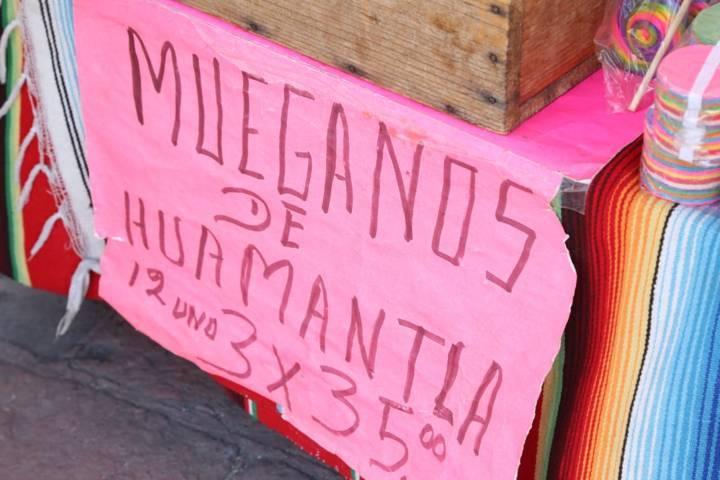 MUEGANOS
DE
HUAMANTLA
12 UNO 3 X 35 00